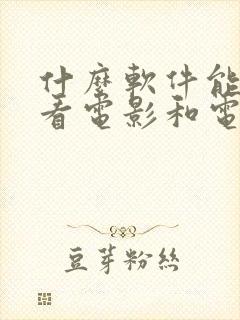 什麼軟件能
看電影和電
豆芽粉絲